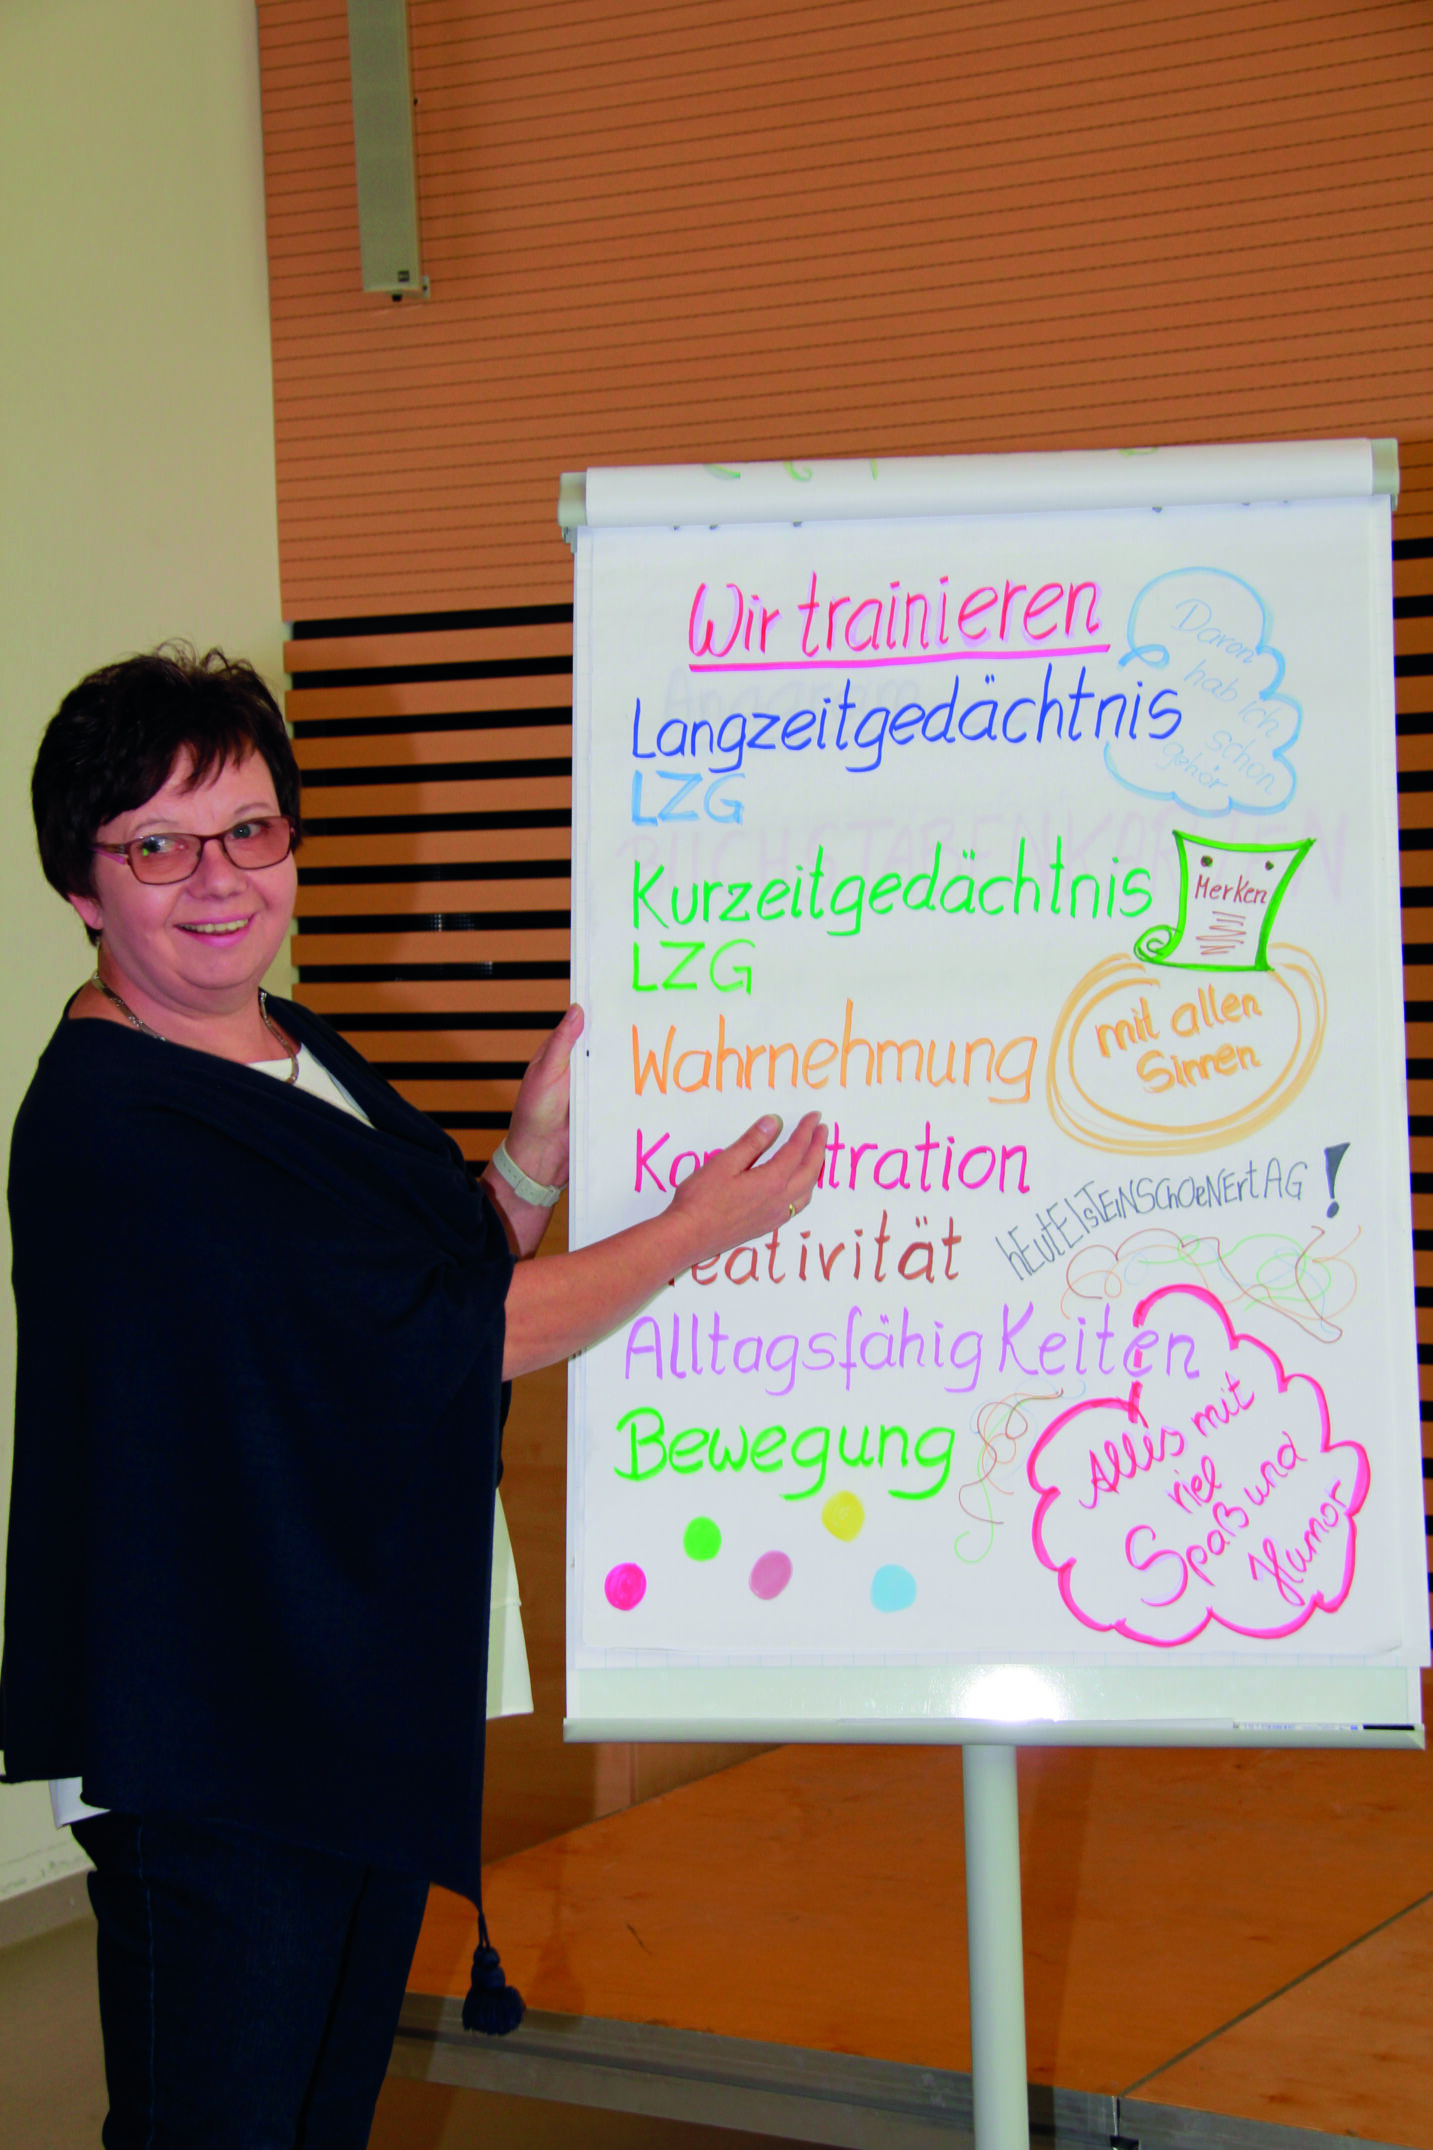 Wir trainieren
Davon
hab ich
schon
gehör
Langzeitgedächtnis
LZG
Kurzeitgedächtnis
LZG
Merken
Wahrnehmung
mit allen
Sinnen
tration
hEutEIsTEiNSChOeNErtAG!
reativität
AlltagsfähigKeiten
Bewegung
Alles mit
viel
Spaß und
Humor